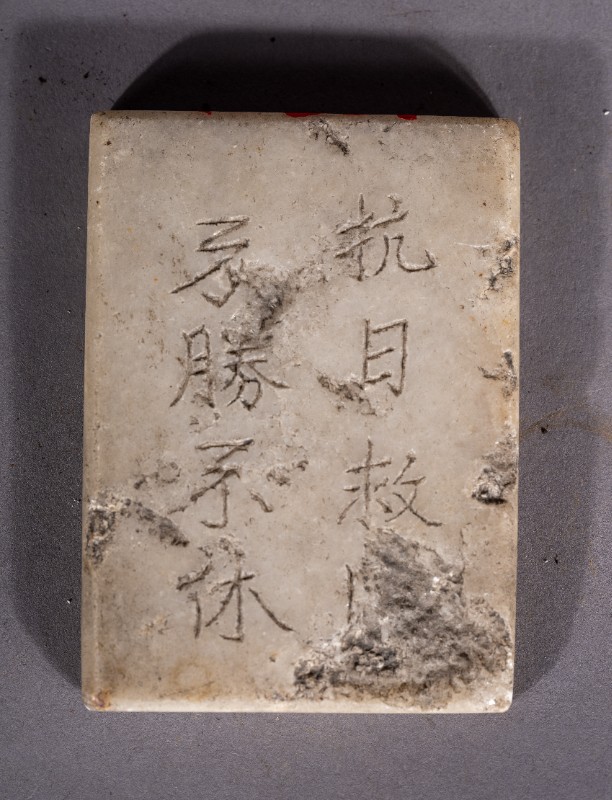 抗日救
不勝不休